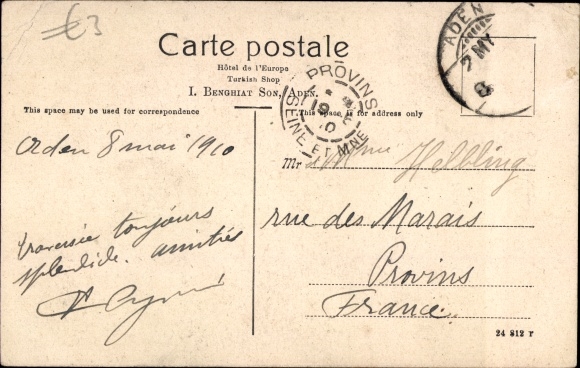 €3
Carte postale
Hôtel de l'Europe
Turkish Shop
I. Benghiat Son, Aden.
ADEN
7 MY
PROVINS
SEINE ET MNE
This space may be used for correspondence
This space is for address only
Aden 8 mai 1910
traversée toujours
splendide. amitiés
Mr & Mme Helbling
rue des Marais
Provins
France
24 812 T